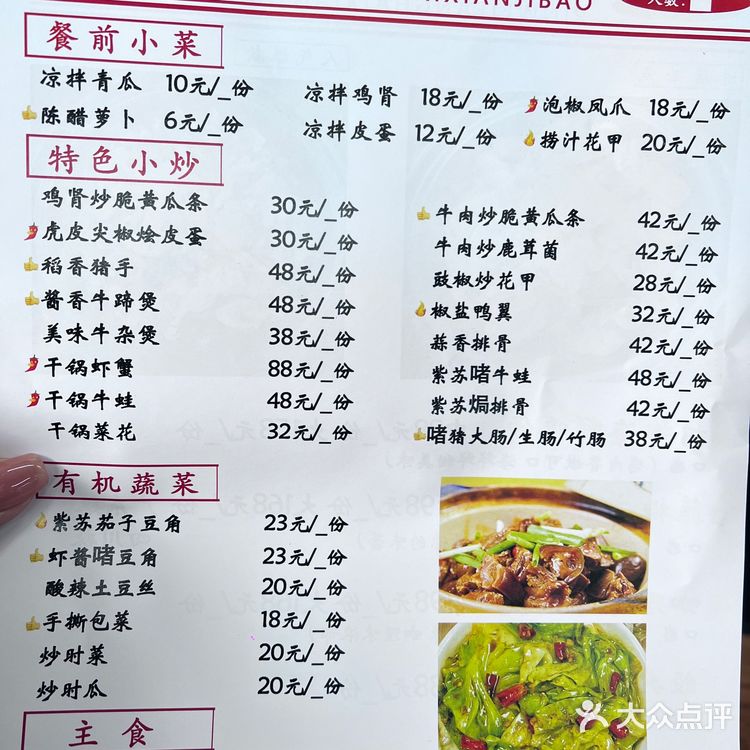 XIANJIBAO
餐前小菜
凉拌青瓜 10元/_份
凉拌鸡肾 18元/_份
泡椒凤爪 18元/_份
陈醋萝卜 6元/_份
凉拌皮蛋 12元/_份
捞汁花甲 20元/_份
特色小炒
鸡肾炒脆黄瓜条 30元/_份
虎皮尖椒烩皮蛋 30元/_份
稻香猪手 48元/_份
酱香牛蹄煲 48元/_份
美味牛杂煲 38元/_份
干锅虾蟹 88元/_份
干锅牛蛙 48元/_份
干锅菜花 32元/_份
牛肉炒脆黄瓜条 42元/_份
牛肉炒鹿茸菌 42元/_份
豉椒炒花甲 28元/_份
椒盐鸭翼 32元/_份
蒜香排骨 42元/_份
紫苏啫牛蛙 48元/_份
紫苏焗排骨 42元/_份
啫猪大肠/生肠/竹肠 38元/_份
有机蔬菜
紫苏茄子豆角 23元/_份
虾酱啫豆角 23元/_份
酸辣土豆丝 20元/_份
手撕包菜 18元/_份
炒时菜 20元/_份
炒时瓜 20元/_份
主食
大众点评